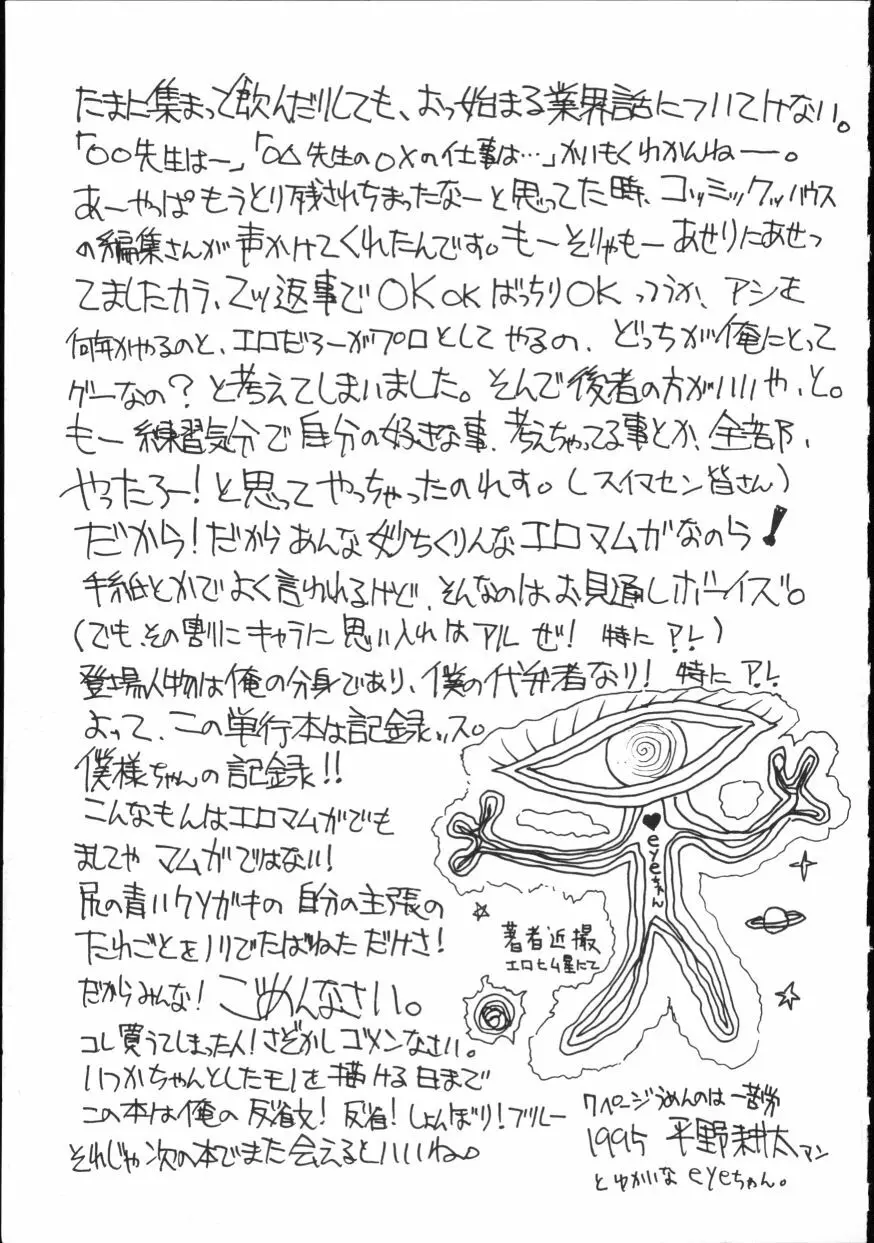 たまに集まって飲んだりしても、おっ始まる業界話についてけない。
「○○先生はー」「○△先生の○×の仕事は…」かいもくわかんねー。
あーやっぱもうとり残されちまったなーと思ってた時、コッミックッハウス
の編集さんが声かけてくれたんです。もーそりゃもーあせりにあせっ
てましたカラ、乙ッ返事で OK OK ばっちり OK っつうか、アシを
何年かやるのと、エロだろーがプロとしてやるの、どっちが俺にとって
ゲーなの？と考えてしまいました。そんで後者の方がいいや、と。
もー練習気分で自分の好きな事、考えちゃってる事とか、全部、
やったろー！と思ってやっちゃったのれす。（スイマセン皆さん）
だから！だからあんな妙ちくりんなエロマムガなのら！
手紙とかでよく言われるけど、そんなのはお見通しボーイズ。
（でも、その割にキャラに思い入れはアルぜ！特にアレ）
登場人物は俺の分身であり、僕の代弁者なり！特にアレ
よって、この単行本は記録ッス。
僕様ちゃんの記録!!
こんなもんはエロマムガでも
ましてやマムガではない！
尻の青いクソガキの自分の主張の
たれごとをノリでたばねただけさ！
だからみんな！ごめんなさい。
コレ買うてしまった人！さぞかしゴメンなさい。
いつかちゃんとしたモノを描ける日まで
この本は俺の反省文！反省！しょんぼり！ブルー
それじゃ次の本でまた会えるといいね。
♥eyeちゃん
著者近撮
エロヒム星にて
7ページうめんのは一苦労
1995 平野耕太マン
とゆかいなeyeちゃん。